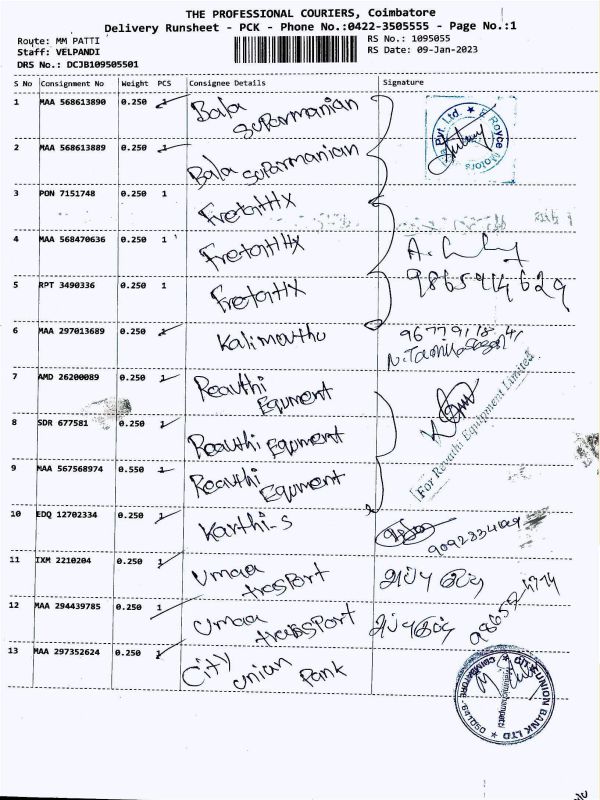 THE PROFESSIONAL COURIERS, Coimbatore
Delivery Runsheet - PCK - Phone No.:0422-3505555 - Page No.:1
Route: MM PATTI
Staff: VELPANDI
DRS No.: DCJB109505501
RS No.: 1095055
RS Date: 09-Jan-2023
S No Consignment No Weight PCS Consignee Details Signature
1 MAA 568613890 0.250 1 Bala suparmanian
2 MAA 568613889 0.250 1 Bala suparmanian
Pvt. Ltd. ★ Royce Motors
3 PON 7151748 0.250 1
4 MAA 568470636 0.250 1 A.
5 RPT 3490336 0.250 1 9865414629
6 MAA 297013689 0.250 1 Kalimuthu
7 AMD 26200089 0.250 1 Reauthi Equment
8 SDR 677581 0.250 1 Reauthi Equment
9 MAA 567568974 0.550 1 Reauthi Equment
For Revathi Equipment Limited
10 EDQ 12702334 0.250 1 Karthi-s
11 IXM 2210204 0.250 1 Umaa trasport
12 MAA 294439785 0.250 1 Umaa transport
13 MAA 297352624 0.250 1 City union Pank
UNION BANK LTD ★ COIMBATORE